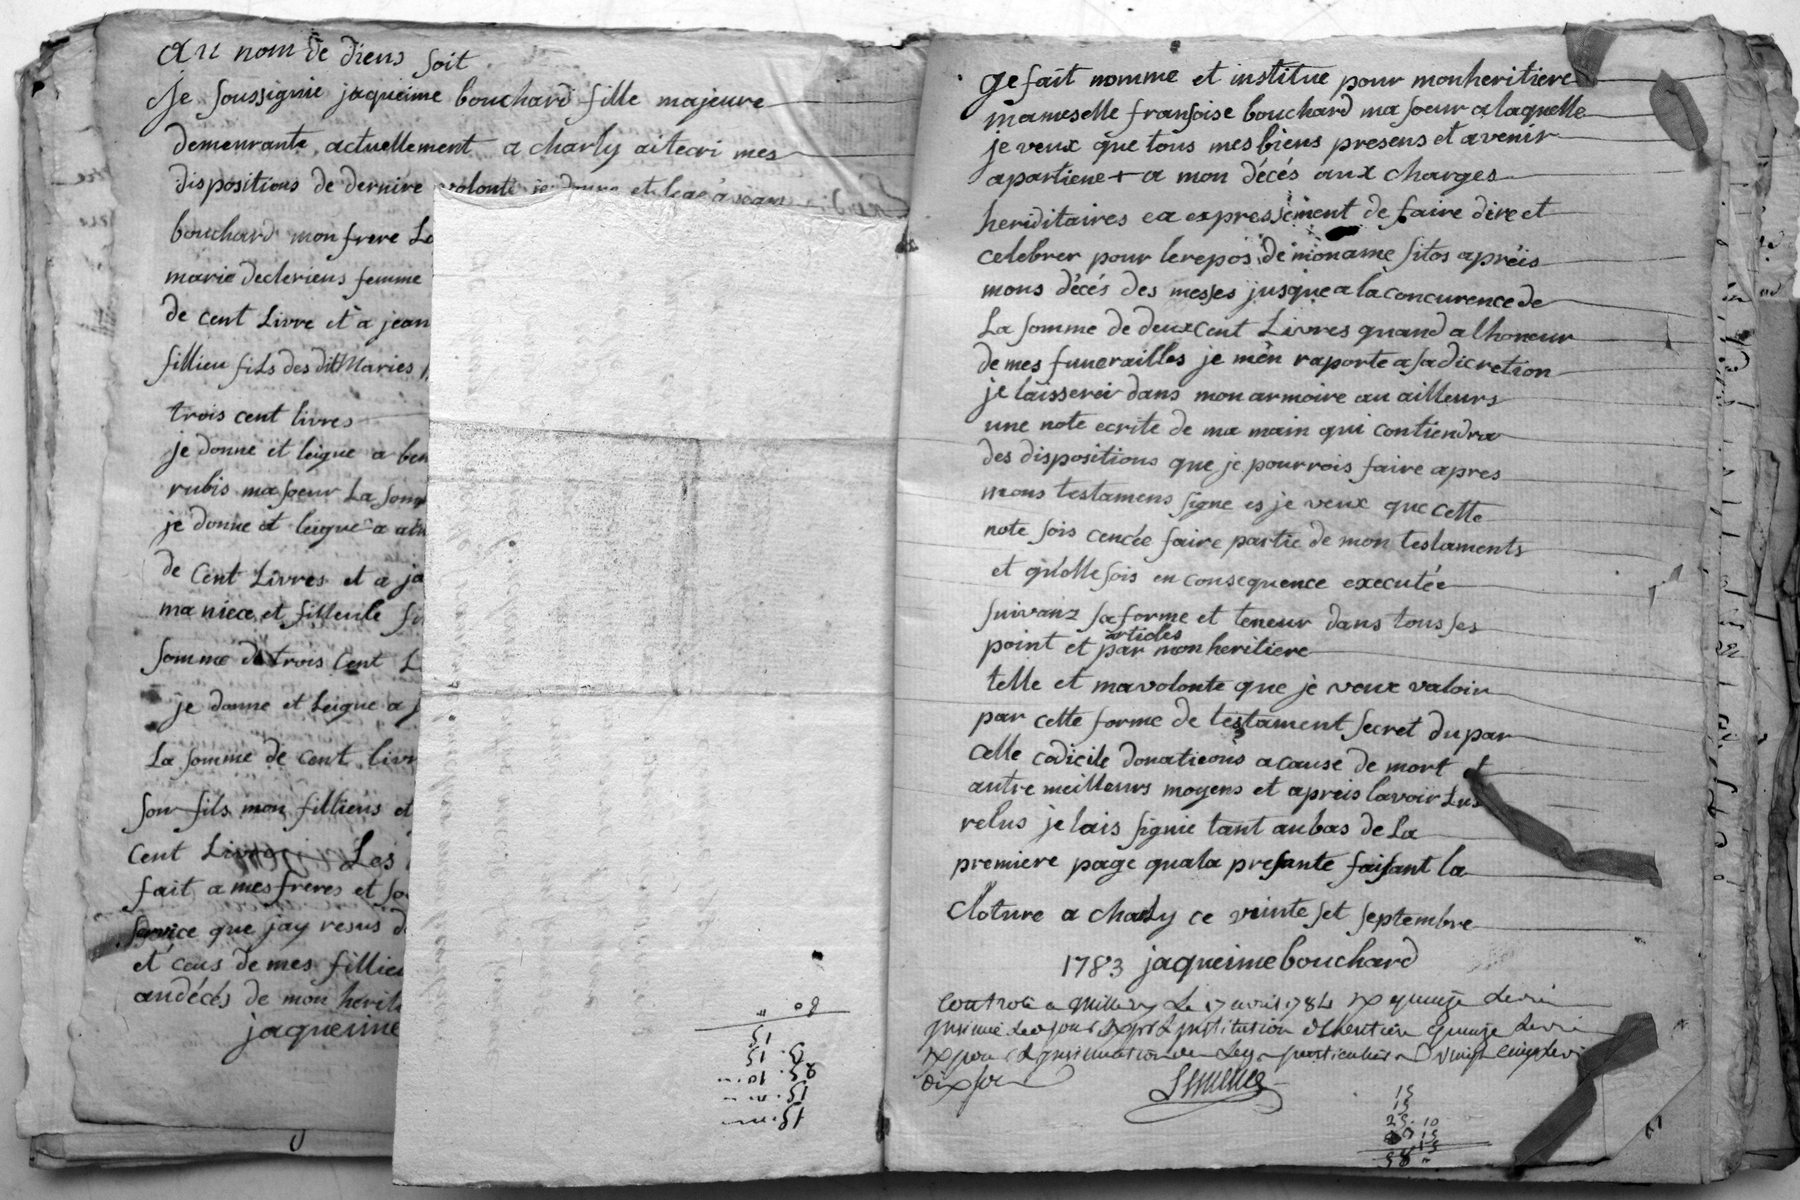 au nom de diens soit
Je soussignie jaqueime bouchard fille majeure
demeurante actuellement a charly ait ecri mes
dispositions de dernire volonte je donne et
bouchard mon frere
marie decleriens femme
de cent Livre et a jean
fillieu fils des dit Maries
trois cent livres
je donne et leigue a
rubis ma soeur La
je donne et leigue a
de Cent Livres et a
ma niece et filleule
somme de trois Cent
je donne et Leigue a
La somme de cent
son fils mon filliens et
Cent Livre Les
fait a mes freres et
service que jay resus
et ceus de mes
au décés de mon
jaqueime
ge fait nomme et institue pour mon heritiere
mameselle fransoise bouchard ma soeur a laquelle
je veux que tous mes biens presens et avenir
apartiene + a mon décés aux charges
heriditaires ea expressement de faire dire et
celebrer pour le repos de mon ame sitos apréis
mons décés des messes jusque a la concurence de
La somme de deux Cent Livres quand a lhoneur
de mes funerailles je mên raporte a sa dicretion
je laisserai dans mon armoire au ailleurs
une note ecrite de ma main qui contiendra
des dispositions que je pourrois faire apres
mons testamens signe es je veux que cette
note sois cencée faire partie de mon testaments
et qu'olle sois en consequence executée
suivanz sa forme et teneur dans tous ses
point et articles par mon heritiere
telle et ma volonte que je veux valoir
par cette forme de testament secret du par
celle codicile donatieons a cause de mort et
autre meilleurs moyens et apreis lavoir Lus
relus je lais signie tant au bas de La
premiere page qu a la presante faisant la
Cloture a charly ce vinte set septembre
1783 jaqueime bouchard
Controlé a Millery Le 17 avril 1784 quinze Livres
institution quinze Livres
vingt cinq Livres
dix sols
15
15
25. 10
58